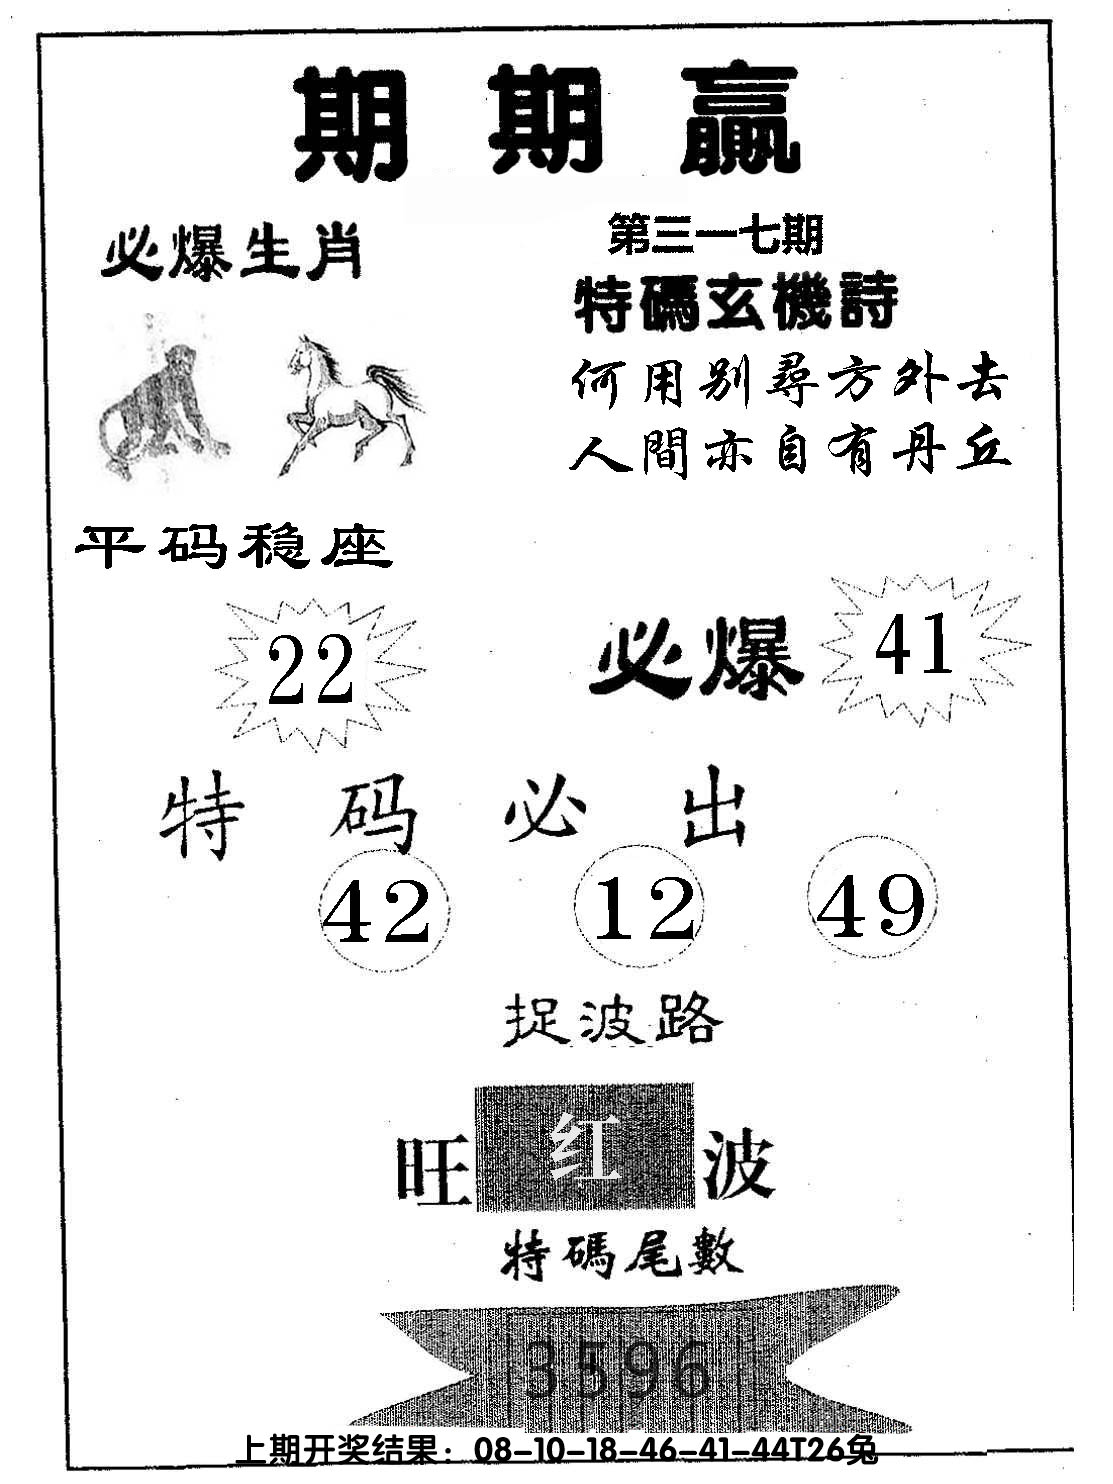 期期贏
第三一七期
必爆生肖
特碼玄機詩
何用别尋方外去
人間亦自有丹丘
平码稳座
22
必爆 41
特码必出
42 12 49
捉波路
旺红波
特碼尾數
3596
上期开奖结果：08-10-18-46-41-44T26兔